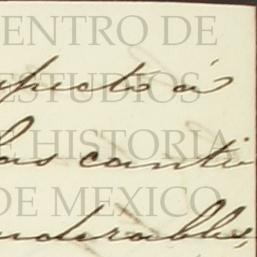 CENTRO DE
specto á
ESTUDIOS
las canti
DE HISTORIA
DE MEXICO
nderables,